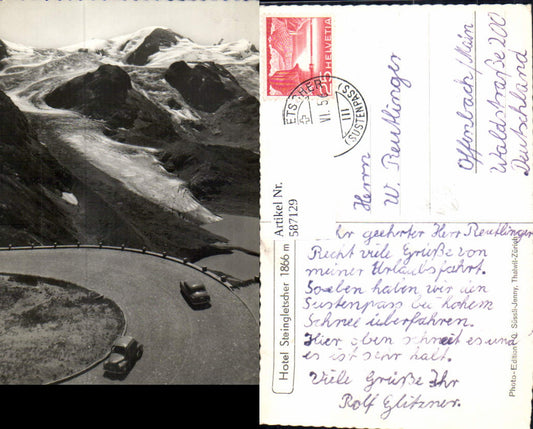 HELVETIA
(SUSTENPASS)
III
VI. 5
Herrn
W. Reutlinger
Offenbach/Main
Waldstraße 200
Deutschland
Artikel Nr.
587129
Hotel Steingletscher 1866 m
Sehr geehrter Herr Reutlinger
Recht viele Grüße von
meiner Urlaubsfahrt.
Soeben haben wir den
Sustenpass bei hohem
Schnee überfahren.
Hier oben schneit es und
es ist sehr kalt.
Viele Grüße Ihr
Rolf Glitzner.
Photo-Edition O. Süssli-Jenny, Thalwil-Zürich